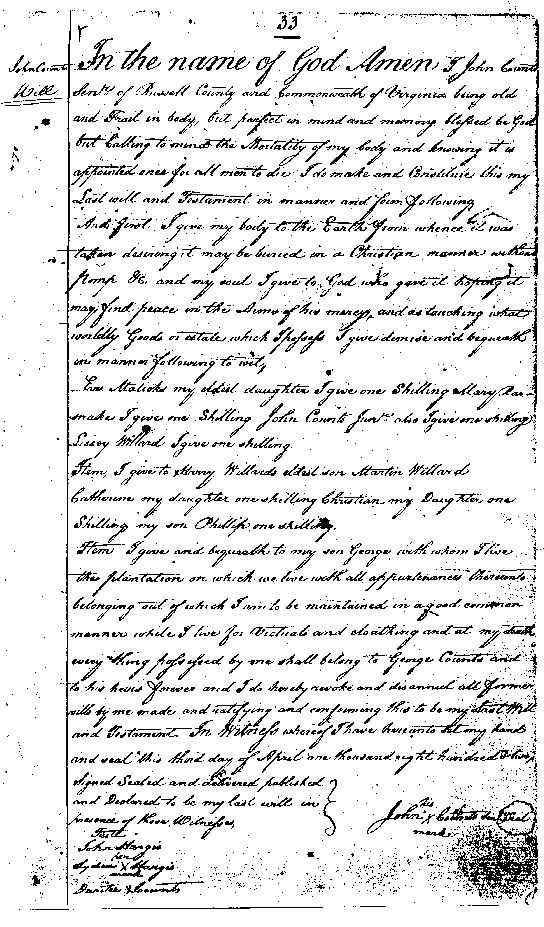 33
John Counts
Will
In the name of God Amen I John Counts
Senr. of Russell County and Commonwealth of Virginia being old
and Frail in body, but perfect in mind and memory blessed be God
but Calling to mind the Mortality of my body and knowing it is
appointed once for all men to die I do make and Constitute this my
Last will and Testament in manner and form following
And first I give my body to the Earth from whence it was
taken desiring it may be buried in a Christian manner without
Pomp &c. and my soul I give to God who gave it hoping it
may find peace in the Arms of his mercy, and as touching what
worldly Goods or estate which I posess I give demise and bequeath
in manner following to wit,
my eldest daughter I give one Shilling Mary
make I give one Shilling John Counts Junr. also I give one shilling
Willard I give one shilling
Item, I give to Willards eldest son Martin Willard
Catherine my daughter one shilling Christian my Daughter one
Shilling my son Phillip one shilling.
Item I give and bequeath to my son George with whom I live
the plantation on which we live with all appurtenances thereunto
belonging out of which I am to be maintained in a good common
manner while I live for Victuals and cloathing and at my death
every thing possessed by me shall belong to George Counts and
to his heirs forever and I do hereby revoke and disannul all former
wills by me made and ratifying and confirming this to be my Last Will
and Testament. In Witness whereof I have hereunto set my hand
and seal this third day of April one thousand eight hundred &
Signed Sealed and delivered published
and Declared to be my last will in
presence of these Witnesses,
his
John x Counts Senr Seal
mark
Test
John Hargis
her
x Hargis
mark
x Counts